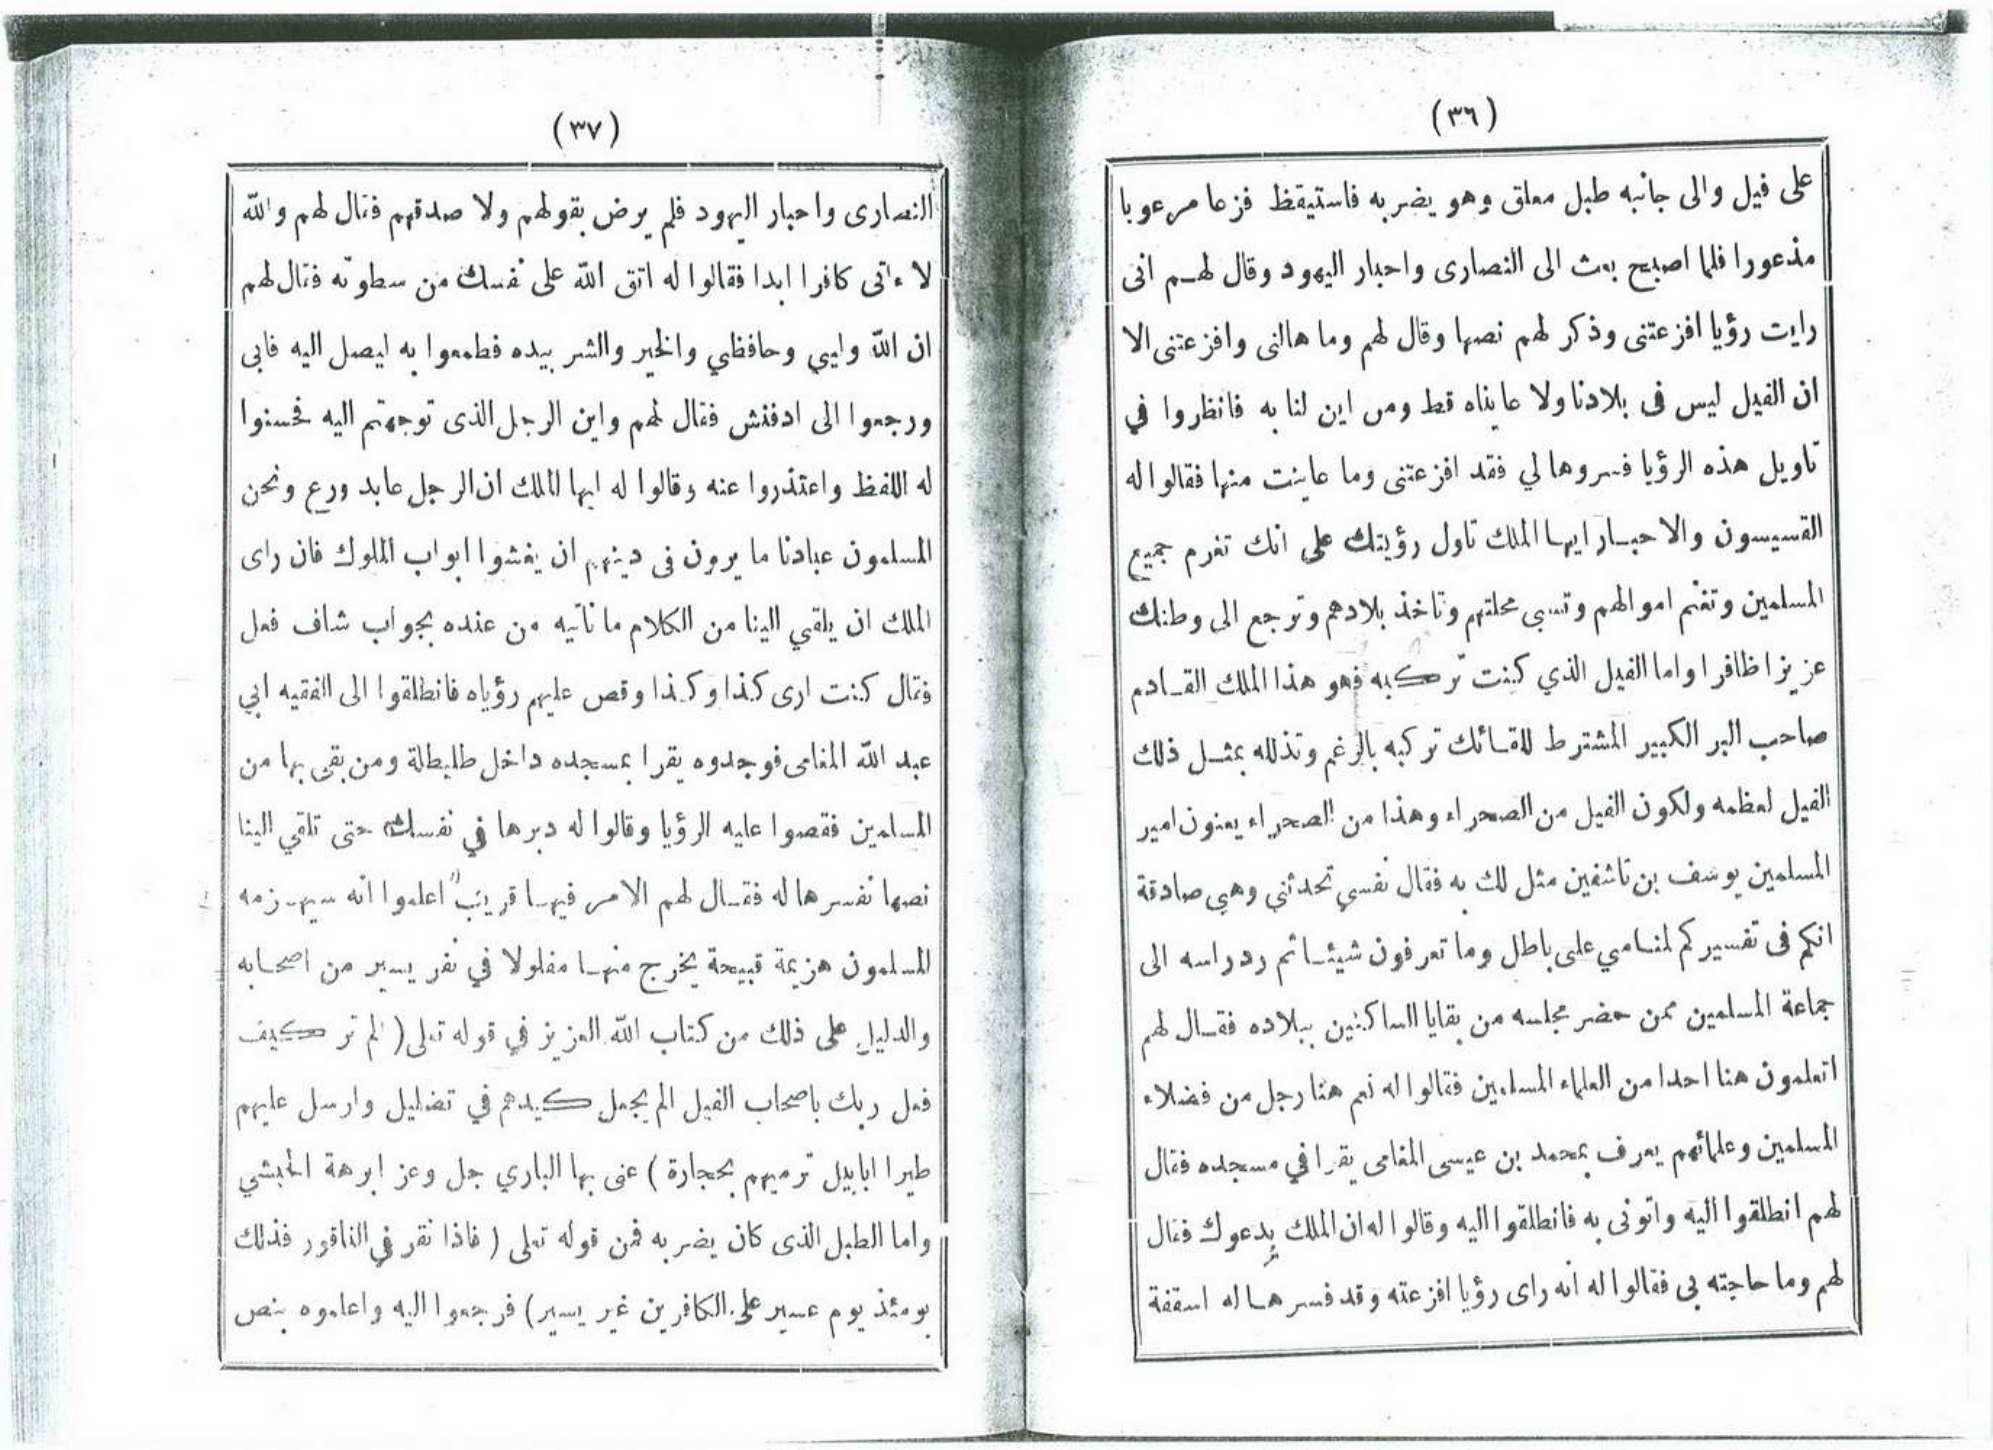 (٣٦)
على فيل والى جانبه طبل معلق وهو يضربه فاستيقظ فزعا مرعوبا
مذعورا فلما اصبح بعث الى النصارى واحبار اليهود وقال لهم انى
رايت رؤيا افزعتنى وذكر لهم نصها وقال لهم وما هالنى وافزعتنى الا
ان الفيل ليس فى بلادنا ولا عايناه قط ومن اين لنا به فانظروا في
تاويل هذه الرؤيا فسروها لي فقد افزعتنى وما عاينت منها فقالوا له
القسيسون والاحبار ايها الملك تاول رؤيتك على انك تغرم جميع
المسلمين وتغنم اموالهم وتسبى محلتهم وتاخذ بلادهم وترجع الى وطنك
عزيزا ظافرا واما الفيل الذي كنت تركبه فهو هذا الملك القادم
صاحب البر الكبير المشترط للقائك تركبه بالرغم وتذلله بمثل ذلك
الفيل لعظمه ولكون الفيل من الصحراء وهذا من الصحراء يعنون امير
المسلمين يوسف بن تاشفين مثل لك به فقال نفسي تحدثني وهي صادقة
انكم فى تفسيركم لمنامي على باطل وما تعرفون شيئا ثم رد راسه الى
جماعة المسلمين ممن حضر مجلسه من بقايا الساكنين ببلاده فقال لهم
اتعلمون هنا احدا من العلماء المسلمين فقالوا له نعم هنا رجل من فضلاء
المسلمين وعلمائهم يعرف بمحمد بن عيسى المغامى يقرا في مسجده فقال
لهم انطلقوا اليه واتونى به فانطلقوا اليه وقالوا له ان الملك يدعوك فقال
لهم وما حاجته بى فقالوا له انه راى رؤيا افزعته وقد فسرها له اسقفة
(٣٧)
النصارى واحبار اليهود فلم يرض بقولهم ولا صدقهم فقال لهم والله
لا ءاتى كافرا ابدا فقالوا له اتق الله على نفسك من سطوته فقال لهم
ان الله وليي وحافظي والخير والشر بيده فطمعوا به ليصل اليه فابى
ورجعوا الى ادفنش فقال لهم واين الرجل الذى توجهتم اليه فحسنوا
له اللفظ واعتذروا عنه وقالوا له ايها الملك ان الرجل عابد ورع ونحن
المسلمون عبادنا ما يرون فى دينهم ان يغشوا ابواب الملوك فان راى
الملك ان يلقي الينا من الكلام ما ناتيه من عنده بجواب شاف فعل
فقال كنت ارى كذا وكذا وقص عليهم رؤياه فانطلقوا الى الفقيه ابي
عبد الله المغامى فوجدوه يقرا بمسجده داخل طليطلة ومن بقى بها من
المسلمين فقصوا عليه الرؤيا وقالوا له دبرها في نفسك حتى تلقي الينا
نصها نفسرها له فقال لهم الامر فيها قريب اعلموا انه سيهزمه
المسلمون هزيمة قبيحة يخرج منها مفلولا في نفر يسير من اصحابه
والدليل على ذلك من كتاب الله العزيز في قوله تعلى ( الم تر كيف
فعل ربك باصحاب الفيل الم يجعل كيدهم في تضليل وارسل عليهم
طيرا ابابيل ترميهم بحجارة ) عنى بها الباري جل وعز ابرهة الحبشي
واما الطبل الذى كان يضربه فمن قوله تعلى ( فاذا نقر في الناقور فذلك
يومئذ يوم عسير على الكافرين غير يسير ) فرجعوا اليه واعلموه بنص